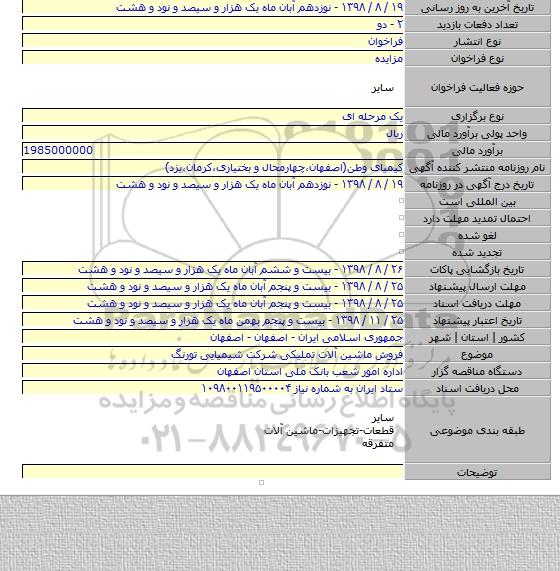 تاریخ آخرین به روز رسانی ۱۹ / ۸ / ۱۳۹۸ - نوزدهم آبان ماه یک هزار و سیصد و نود و هشت
تعداد دفعات بازدید ۲ - دو
نوع انتشار فراخوان
نوع فراخوان مزایده
حوزه فعالیت فراخوان سایر
نوع برگزاری یک مرحله ای
واحد پولی برآورد مالی ریال
برآورد مالی 1985000000
نام روزنامه منتشر کننده آگهی کیمیای وطن(اصفهان،چهارمحال و بختیاری،کرمان،یزد)
تاریخ درج آگهی در روزنامه ۱۹ / ۸ / ۱۳۹۸ - نوزدهم آبان ماه یک هزار و سیصد و نود و هشت
بین المللی است
احتمال تمدید مهلت دارد
لغو شده
تجدید شده
تاریخ بازگشایی پاکات ۲۶ / ۸ / ۱۳۹۸ - بیست و ششم آبان ماه یک هزار و سیصد و نود و هشت
مهلت ارسال پیشنهاد ۲۵ / ۸ / ۱۳۹۸ - بیست و پنجم آبان ماه یک هزار و سیصد و نود و هشت
مهلت دریافت اسناد ۲۵ / ۸ / ۱۳۹۸ - بیست و پنجم آبان ماه یک هزار و سیصد و نود و هشت
تاریخ اعتبار پیشنهاد ۲۵ / ۱۱ / ۱۳۹۸ - بیست و پنجم بهمن ماه یک هزار و سیصد و نود و هشت
کشور | استان | شهر جمهوری اسلامی ایران - اصفهان - اصفهان
موضوع فروش ماشین آلات تملیکی شرکت شیمیایی تورنگ
دستگاه مناقصه گزار اداره امور شعب بانک ملی استان اصفهان
محل دریافت اسناد ستاد ایران به شماره نیاز ۱۰۹۸۰۰۱۱۹۵۰۰۰۰۴
سایر
طبقه بندی موضوعی قطعات-تجهیزات-ماشین آلات
متفرقه
توضیحات
پایگاه اطلاع رسانی مناقصه و مزایده
۰۲۱-۸۸۳۴۹۶۷۰-۵